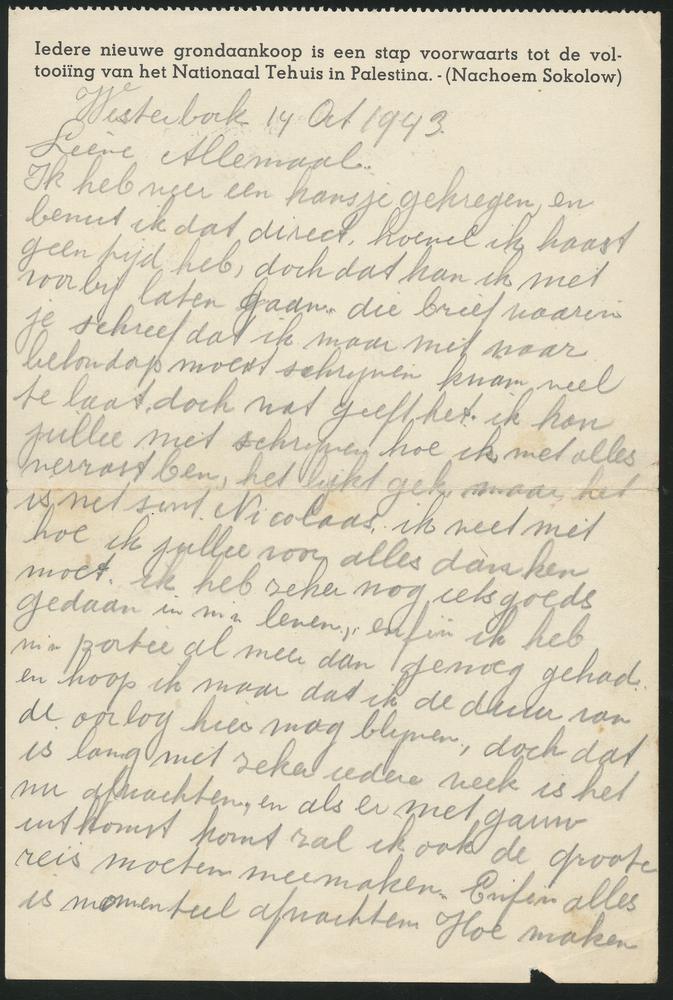 Iedere nieuwe grondaankoop is een stap voorwaarts tot de vol-
tooiïng van het Nationaal Tehuis in Palestina. - (Nachoem Sokolow)
Westerbork 14 Oct 1943.
Lieve Allemaal.
Ik heb weer een kansje gekregen, en
benut ik dat direct, hoewel ik haast
geen tijd heb, doch dat kan ik niet
voorbij laten gaan. die brief waarin
je schreef dat ik maar niet naar
moest schrijven kwam veel
te laat, doch wat geeft het. ik kan
jullie niet schrijven hoe ik met alles
verrast ben, het lijkt gek maar het
is net sint Nicolaas, ik weet niet
hoe ik jullie voor alles danken
moet. ik heb zeker nog iets goeds
gedaan in mijn leven, enfin ik heb
mijn portie al meer dan genoeg gehad.
en hoop ik maar dat ik de duur van
de oorlog hier mag blijven, doch dat
is lang niet zeker iedere week is het
nu afwachten, en als er niet gauw
uitkomst komt zal ik ook de groote
reis moeten meemaken. Enfin alles
is momenteel afwachten Hoe maken